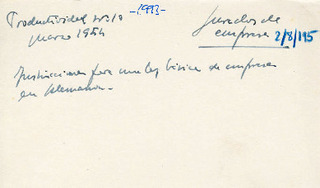 -1993-
Productividad nº 10
Marzo 1954
Jurados de
empresa 2/8/195
para una ley básica de empresa
en Alemania.-